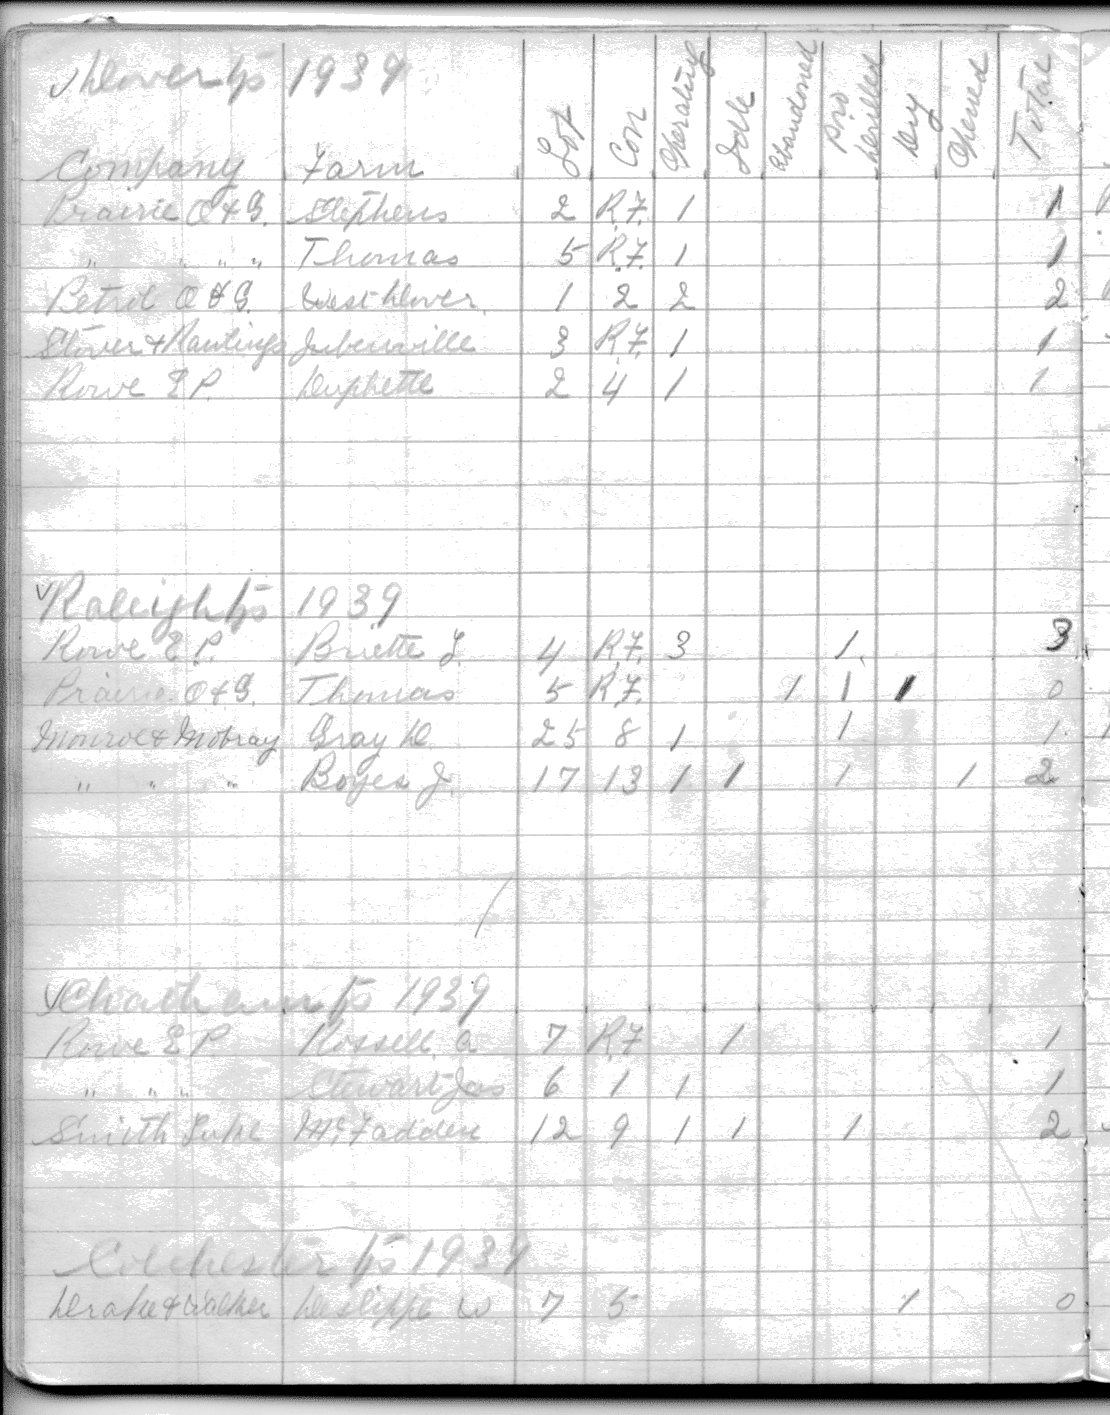 ✓ Dover Tp 1939
Company Farm Lot Con Operating Idle Abandoned Pro Drilled Dry Opened Total
Prairie O & G. Stephens 2 R.F. 1 1
" " " " Thomas 5 R.F. 1 1
Petrol O & G. West Dover 1 2 2 2
Stover & Rawlings Jubenville 3 R.F. 1 1
Rowe E P. Duphette 2 4 1 1
✓ Raleigh Tp 1939
Rowe E P. Briette J. 4 R.F. 3 1 3
Prairie O & G. Thomas 5 R.F. 1 1 1 0
Monroe & Mobray Gray D. 25 8 1 1 1
" " " Boyes J. 17 13 1 1 1 1 2
✓ Chatham Tp 1939
Rowe E P. Rossell. A 7 R.F 1 1
" " " Stewart Jas 6 1 1 1
Smith Luke McFadden 12 9 1 1 1 2
Colchester Tp 1939
Drake & Walker Deslippe W 7 5 1 0